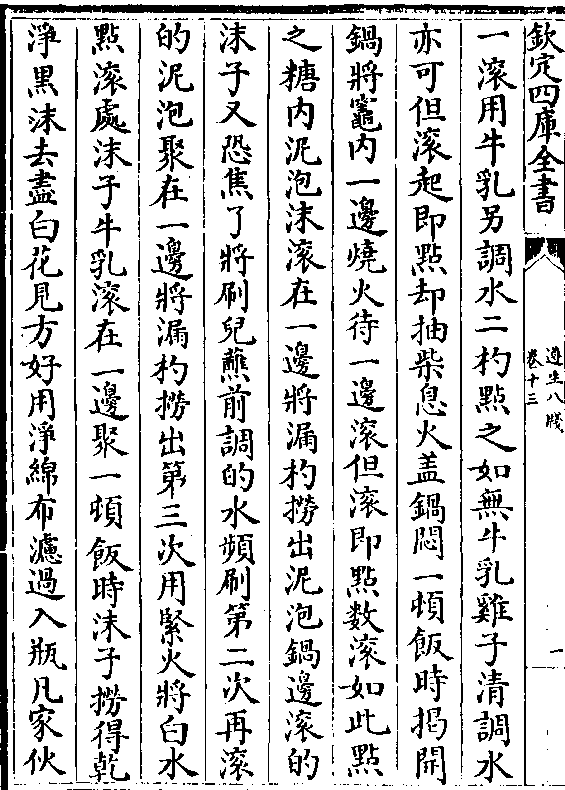 欽定四庫全書
遵生八牋
卷十三
一
一滚用牛乳另調水二杓點之如無牛乳雞子清調水
亦可但滚起即點却抽柴息火盖鍋悶一頓飯時揭開
鍋將竈内一邊燒火待一邊滚但滚即點數滚如此點
之糖内泥泡沫滚在一邊將漏杓撈出泥泡鍋邊滚的
沫子又恐焦了將刷兒蘸前調的水頻刷第二次再滚
的泥泡聚在一邊將漏杓撈出第三次用緊火將白水
點滚處沫子牛乳滚在一邊聚一頓飯時沫子撈得乾
淨黒沫去盡白花見方好用淨綿布濾過入瓶凡家伙